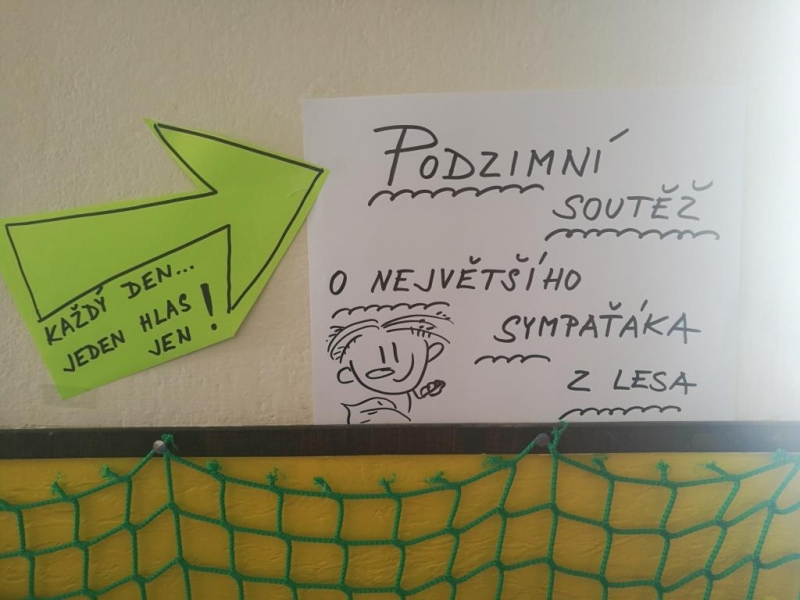 KAŽDÝ DEN...
JEDEN HLAS
JEN!
PODZIMNÍ
SOUTĚŽ
O NEJVĚTŠÍHO
SYMPAŤÁKA
Z LESA